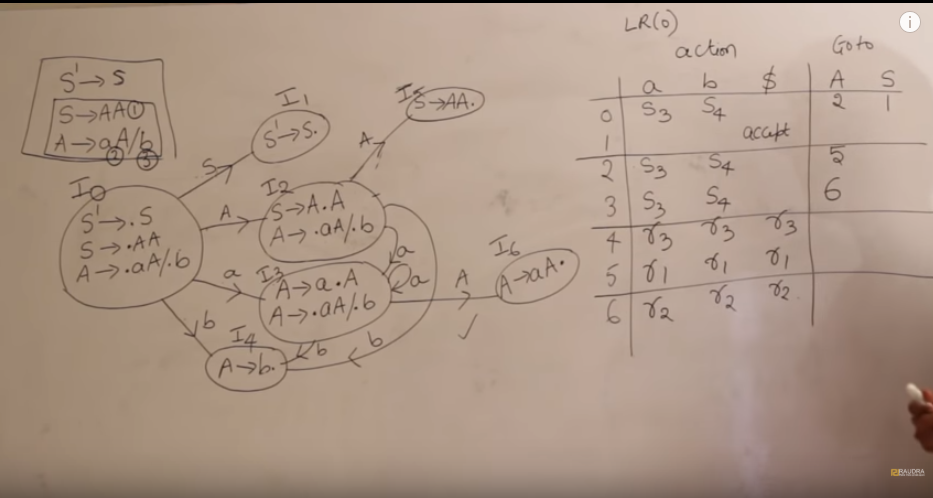 S' → S
S → AA ①
A → aA/b
② ③
I0
S' → .S
S → .AA
A → .aA/.b
S
I1
S' → S.
A
I2
S → A.A
A → .aA/.b
A
I5
S → AA.
a
I3
A → a.A
A → .aA/.b
a
a
A
I6
A → aA.
✓
b
I4
A → b.
b
b
LR(0)
action Goto
a b $ A S
0 S3 S4 2 1
1 accept
2 S3 S4 5
3 S3 S4 6
4 r3 r3 r3
5 r1 r1 r1
6 r2 r2 r2
i
RAUDRA